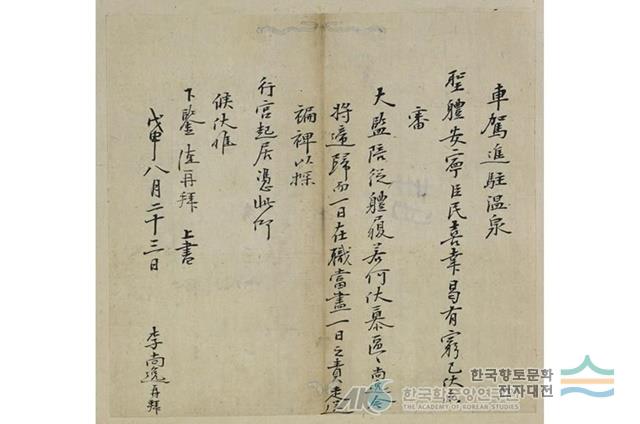 車駕進駐溫泉
聖體安寧臣民喜幸曷有窮已伏
審
大監陪從體履若何伏慕區〻尙逸今
將遞歸而一日在職當盡一日之責走送
褊裨以探
行宮起居憑此仰
候伏惟
下鑒 再拜 上書
戊申八月二十三日
李尙逸再拜
한국향토문화
전자대전
AKS 한국학중앙연구원
THE ACADEMY OF KOREAN STUDIES